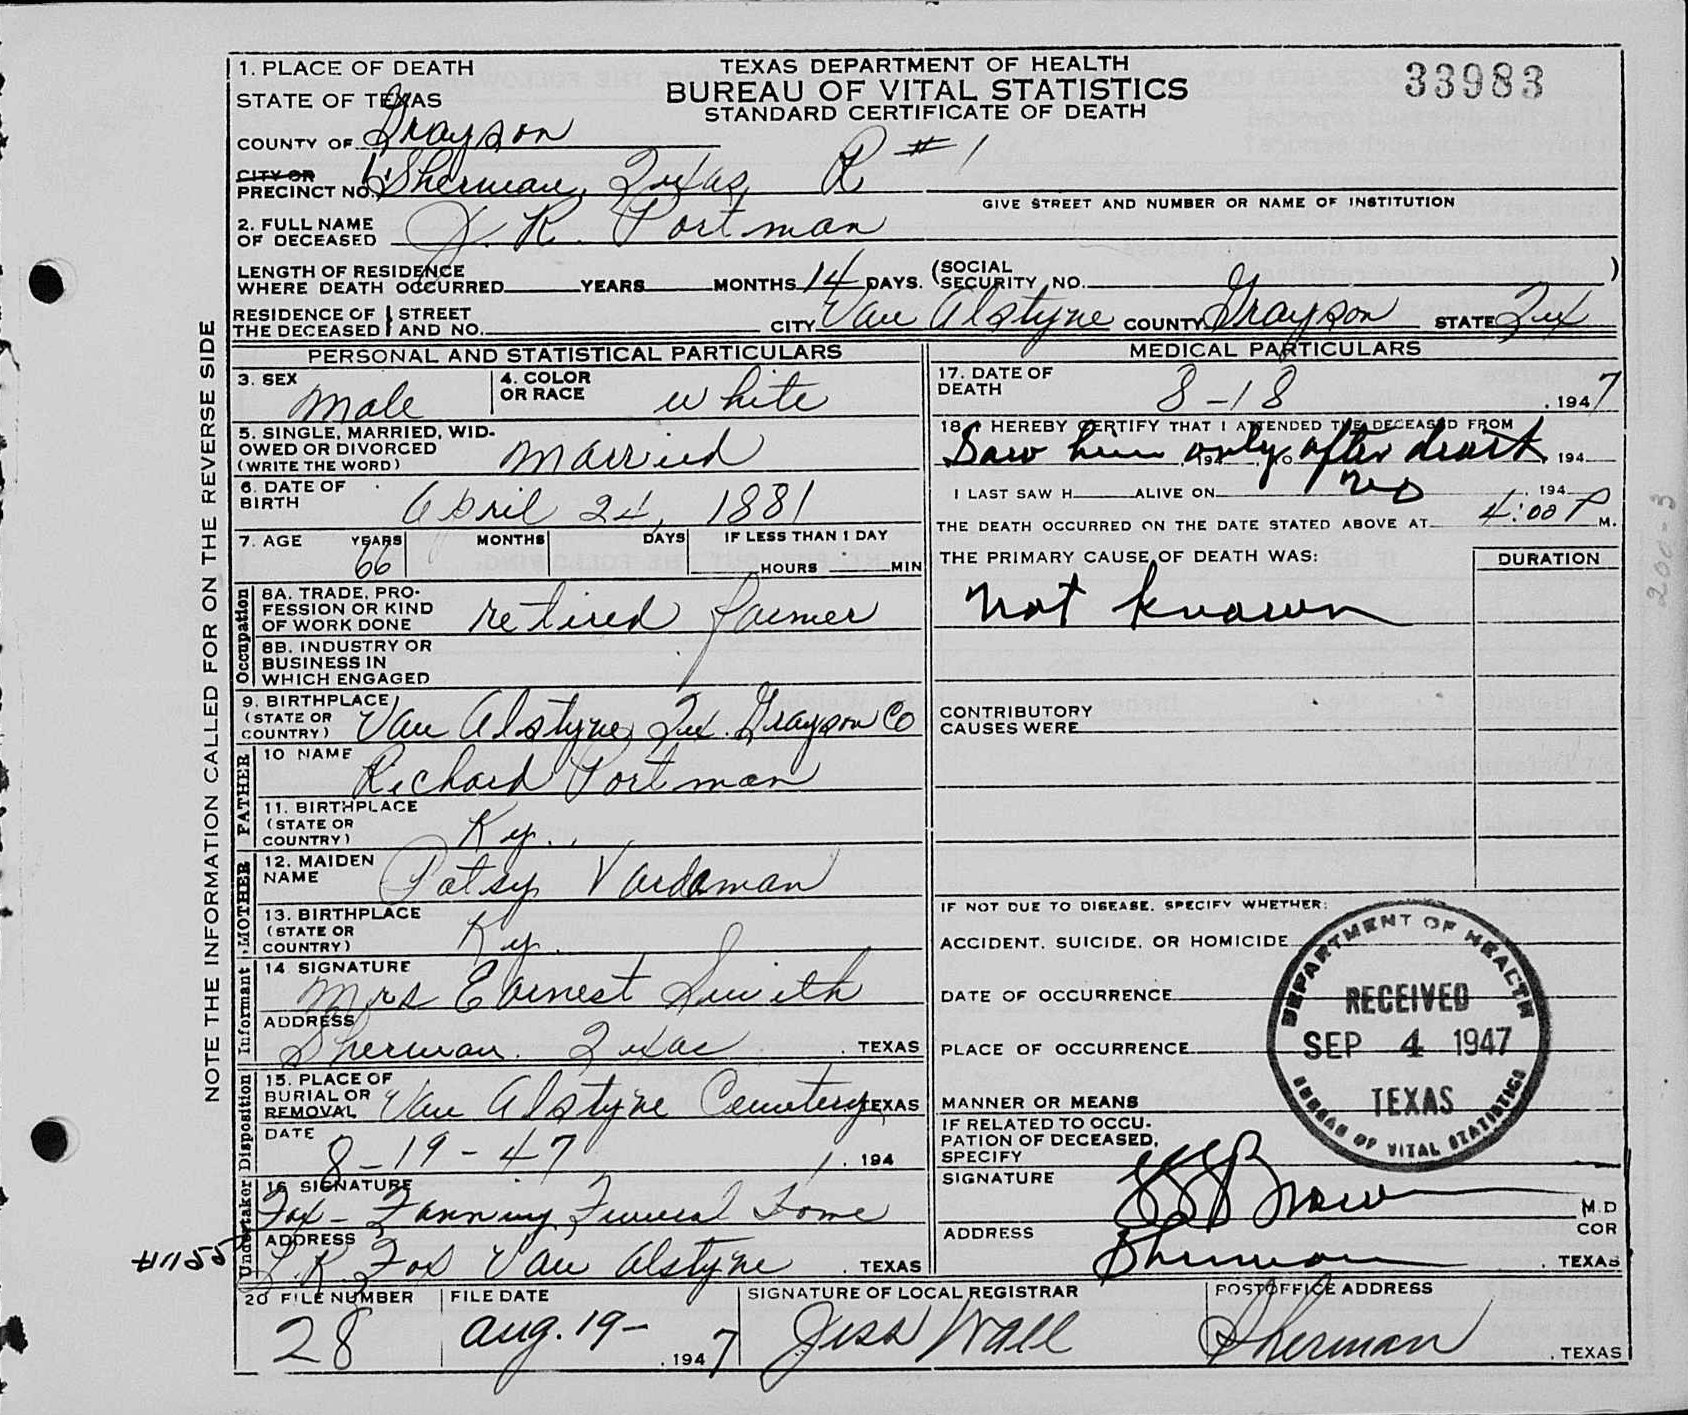 1. PLACE OF DEATH
STATE OF TEXAS
COUNTY OF Grayson
TEXAS DEPARTMENT OF HEALTH
BUREAU OF VITAL STATISTICS
STANDARD CERTIFICATE OF DEATH
33983
CITY OR
PRECINCT NO. 1 Sherman, Texas R #1
GIVE STREET AND NUMBER OR NAME OF INSTITUTION
2. FULL NAME
OF DECEASED J. R. Portman
LENGTH OF RESIDENCE
WHERE DEATH OCCURRED YEARS MONTHS 14 DAYS. (SOCIAL SECURITY NO. )
RESIDENCE OF THE DECEASED } STREET AND NO. CITY Van Alstyne COUNTY Grayson STATE Tex
NOTE THE INFORMATION CALLED FOR ON THE REVERSE SIDE
PERSONAL AND STATISTICAL PARTICULARS
3. SEX male
4. COLOR OR RACE white
5. SINGLE, MARRIED, WID-
OWED OR DIVORCED
(WRITE THE WORD) married
6. DATE OF
BIRTH April 24, 1881
7. AGE YEARS 66 MONTHS DAYS IF LESS THAN 1 DAY
HOURS MIN
Occupation
8A. TRADE, PRO-
FESSION OR KIND
OF WORK DONE retired farmer
8B. INDUSTRY OR
BUSINESS IN
WHICH ENGAGED
9. BIRTHPLACE
(STATE OR
COUNTRY) Van Alstyne, Tex. Grayson Co
FATHER
10 NAME Richard Portman
11. BIRTHPLACE
(STATE OR
COUNTRY) Ky.
MOTHER
12. MAIDEN
NAME Patsy Vardaman
13. BIRTHPLACE
(STATE OR
COUNTRY) Ky.
Informant
14 SIGNATURE Mrs Earnest Smith
ADDRESS Sherman. Texas . TEXAS
Disposition
15. PLACE OF
BURIAL OR
REMOVAL Van Alstyne Cemetery TEXAS
DATE 8-19-47 . 194
Undertaker
16 SIGNATURE
Fox-Fanning Funeral Home
ADDRESS
#1155 L. K. Fox Van Alstyne . TEXAS
MEDICAL PARTICULARS
17. DATE OF
DEATH 8-18 . 1947
18. I HEREBY CERTIFY THAT I ATTENDED THE DECEASED FROM
Saw him only after death , 194
I LAST SAW H ALIVE ON no . 194
THE DEATH OCCURRED ON THE DATE STATED ABOVE AT 4:00 P M.
THE PRIMARY CAUSE OF DEATH WAS: DURATION
not known
CONTRIBUTORY
CAUSES WERE
IF NOT DUE TO DISEASE, SPECIFY WHETHER:
ACCIDENT, SUICIDE, OR HOMICIDE
DATE OF OCCURRENCE
PLACE OF OCCURRENCE
MANNER OR MEANS
IF RELATED TO OCCU-
PATION OF DECEASED,
SPECIFY
DEPARTMENT OF HEALTH
RECEIVED
SEP 4 1947
TEXAS
BUREAU OF VITAL STATISTICS
SIGNATURE Brown M.D
COR
ADDRESS Sherman . TEXAS
20 FILE NUMBER 28
FILE DATE Aug. 19- . 1947
SIGNATURE OF LOCAL REGISTRAR Jess Wall
POSTOFFICE ADDRESS Sherman . TEXAS
200-3